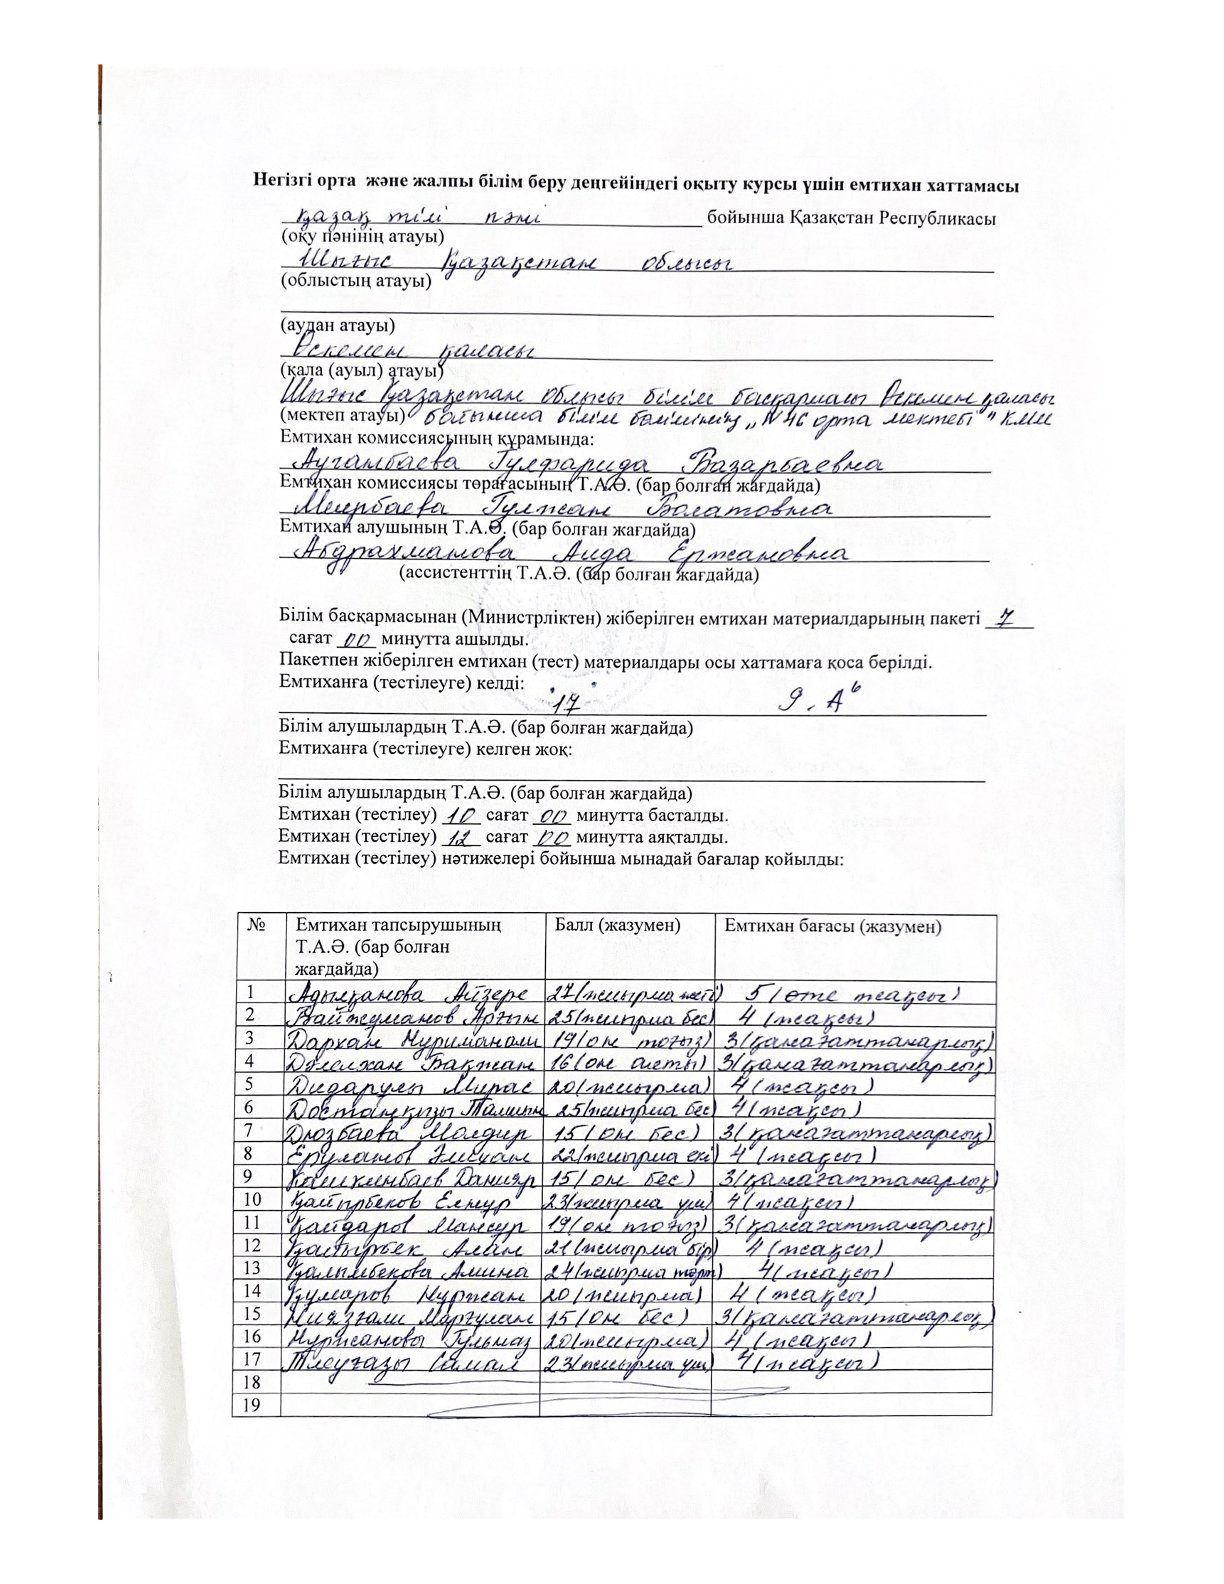 Негізгі орта және жалпы білім беру деңгейіндегі оқыту курсы үшін емтихан хаттамасы
қазақ тілі пәні бойынша Қазақстан Республикасы
(оқу пәнінің атауы)
Шығыс Қазақстан облысы
(облыстың атауы)
(аудан атауы)
Өскемен қаласы
(қала (ауыл) атауы)
Шығыс Қазақстан облысы білім басқармасы Өскемен қаласы
(мектеп атауы) бойынша білім бөлімінің „N 46 орта мектебі" КММ
Емтихан комиссиясының құрамында:
Ауганбаева Гулфарида Базарбаевна
Емтихан комиссиясы төрағасының Т.А.Ә. (бар болған жағдайда)
Меирбаева Гулжан Болатовна
Емтихан алушының Т.А.Ә. (бар болған жағдайда)
Абдрахманова Аида Ержановна
(ассистенттің Т.А.Ә. (бар болған жағдайда)
Білім басқармасынан (Министрліктен) жіберілген емтихан материалдарының пакеті 7
сағат 00 минутта ашылды.
Пакетпен жіберілген емтихан (тест) материалдары осы хаттамаға қоса берілді.
Емтиханға (тестілеуге) келді:
17 9 „А"
Білім алушылардың Т.А.Ә. (бар болған жағдайда)
Емтиханға (тестілеуге) келген жоқ:
Білім алушылардың Т.А.Ә. (бар болған жағдайда)
Емтихан (тестілеу) 10 сағат 00 минутта басталды.
Емтихан (тестілеу) 12 сағат 00 минутта аяқталды.
Емтихан (тестілеу) нәтижелері бойынша мынадай бағалар қойылды:
№ Емтихан тапсырушының Балл (жазумен) Емтихан бағасы (жазумен)
Т.А.Ә. (бар болған
жағдайда)
1 Адылқанова Айзере 27(жиырма жеті) 5 (өте жақсы)
2 Байжуманов Арғын 25(жиырма бес) 4 (жақсы)
3 Дархан Нуриманали 19(он тоғыз) 3(қанағаттанарлық)
4 Дәлелхан Бақжан 16(он алты) 3(қанағаттанарлық)
5 Дидарұлы Мирас 20(жиырма) 4(жақсы)
6 Достанқызы Томирис 25(жиырма бес) 4(жақсы)
7 Дюзбаева Молдир 15(он бес) 3(қанағаттанарлық)
8 Ерұланов Әлихан 22(жиырма екі) 4(жақсы)
9 Кашкинбаев Данияр 15(он бес) 3(қанағаттанарлық)
10 Қайырбеков Елнұр 23(жиырма үш) 4(жақсы)
11 Қайдаров Мансур 19(он тоғыз) 3(қанағаттанарлық)
12 Қайырбек Алан 21(жиырма бір) 4(жақсы)
13 Қалымбекова Амина 24(жиырма төрт) 4(жақсы)
14 Құмаров Нұржан 20(жиырма) 4 (жақсы)
15 Ниязғали Марғулан 15(он бес) 3(қанағаттанарлық)
16 Нуржановы Гульназ 20(жиырма) 4 (жақсы)
17 Тлеуғазы Самал 23(жиырма үш) 4(жақсы)
18
19